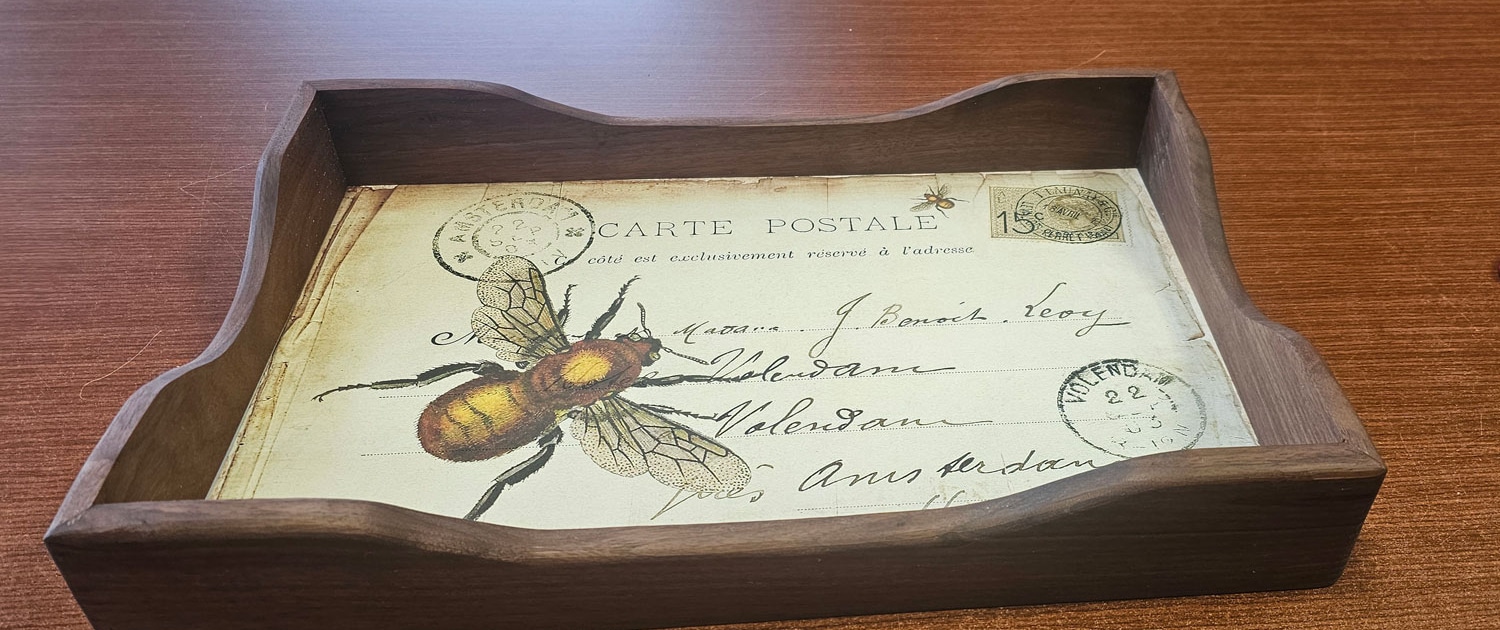 AMSTERDAM
22
CARTE POSTALE
15
côté est exclusivement réservé à l'adresse
Madame. J. Benoit. Levy
Volendam
Volendam
VOLENDAM
22
près Amsterdam